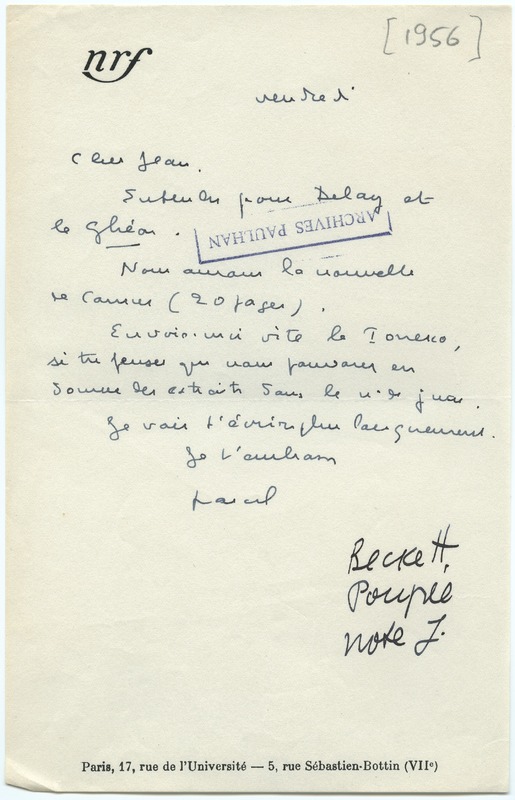 [1956]
nrf
vendredi
Cher Jean.
Entendu pour Delay et
le Ghéon.
ARCHIVES PAULHAN
Nous aurons la nouvelle
de Camus (20 pages).
Envoie-moi vite le Ionesco,
si tu penses que nous pouvons en
donner des extraits dans le n° de juin.
Je vais t'écrire plus longuement.
Je t'embrasse
Marcel
Beckett,
Poupée
note J.
Paris, 17, rue de l'Université — 5, rue Sébastien-Bottin (VIIe)